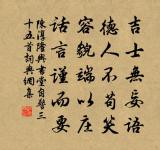 吉士無妄語
德人不苟笑
容貌端以莊
話言謹而要
陳淳隆興書堂自警三
十五首詞典網集